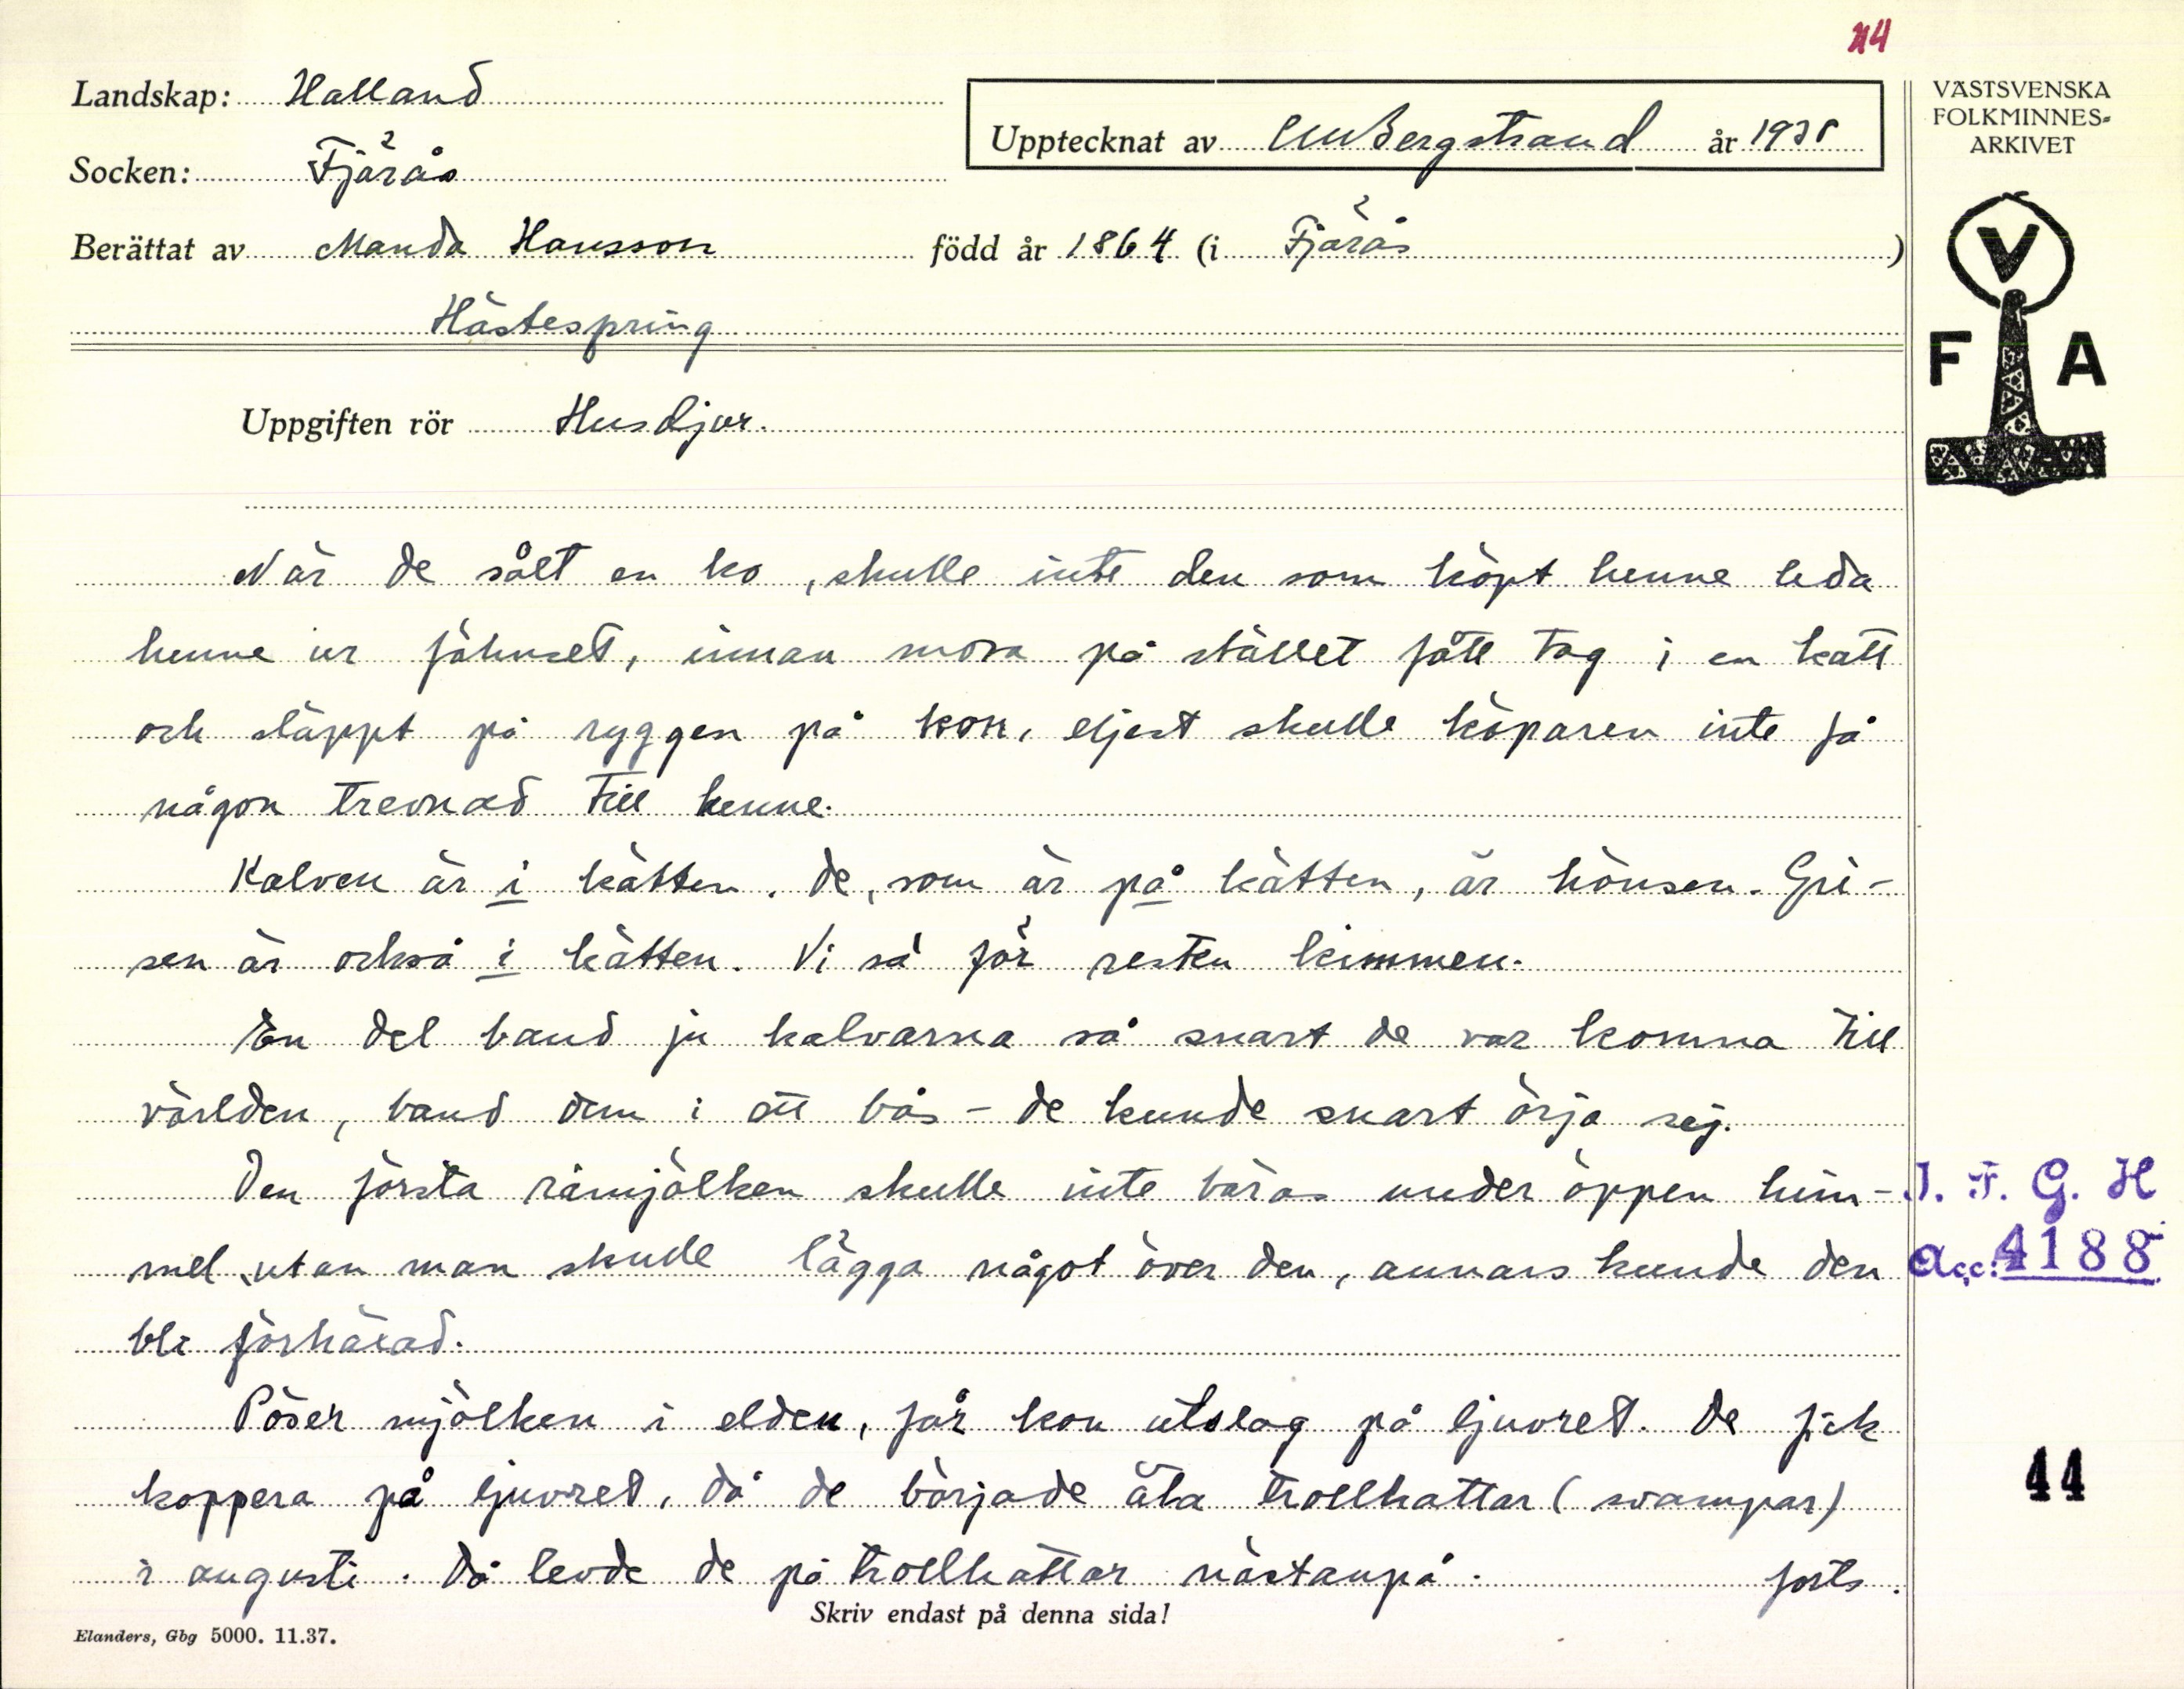 44
Landskap: Halland
Upptecknat av CM Bergstrand år 1938
Socken: Fjärås
Berättat av Manda Hansson född år 1864 (i Fjärås)
Hästespring
Uppgiften rör Husdjur.
När de sålt en ko, skulle inte den som köpt henne leda
henne ur fähuset, innan mora på stället fått tag i en katt
och släppt på ryggen på kon, eljest skulle köparen inte få
någon trevnad till henne.
Kalven är i kätten. De, som är på kätten, är hönsen. Gri-
sen är också i kätten. Vi sä för resten kimmen.
En del band ju kalvarna så snart de var komna till
världen, band dem i ett bås - de kunde snart örja sej.
Den första råmjölken skulle inte bäras under öppen him-
mel, utan man skulle lägga något över den, annars kunde den
bli förhäxad.
Pöser mjölken i elden, får kon utslag på ljuvret. De fick
koppera på ljuvret, då de började äta trollhattar (svampar)
i augusti. Då levde de på trollhattar nästanpå. forts.
Skriv endast på denna sida!
Elanders, Gbg 5000. 11.37.
VÄSTSVENSKA
FOLKMINNES-
ARKIVET
V
F A
I. F. G. H
Acc: 4188
44